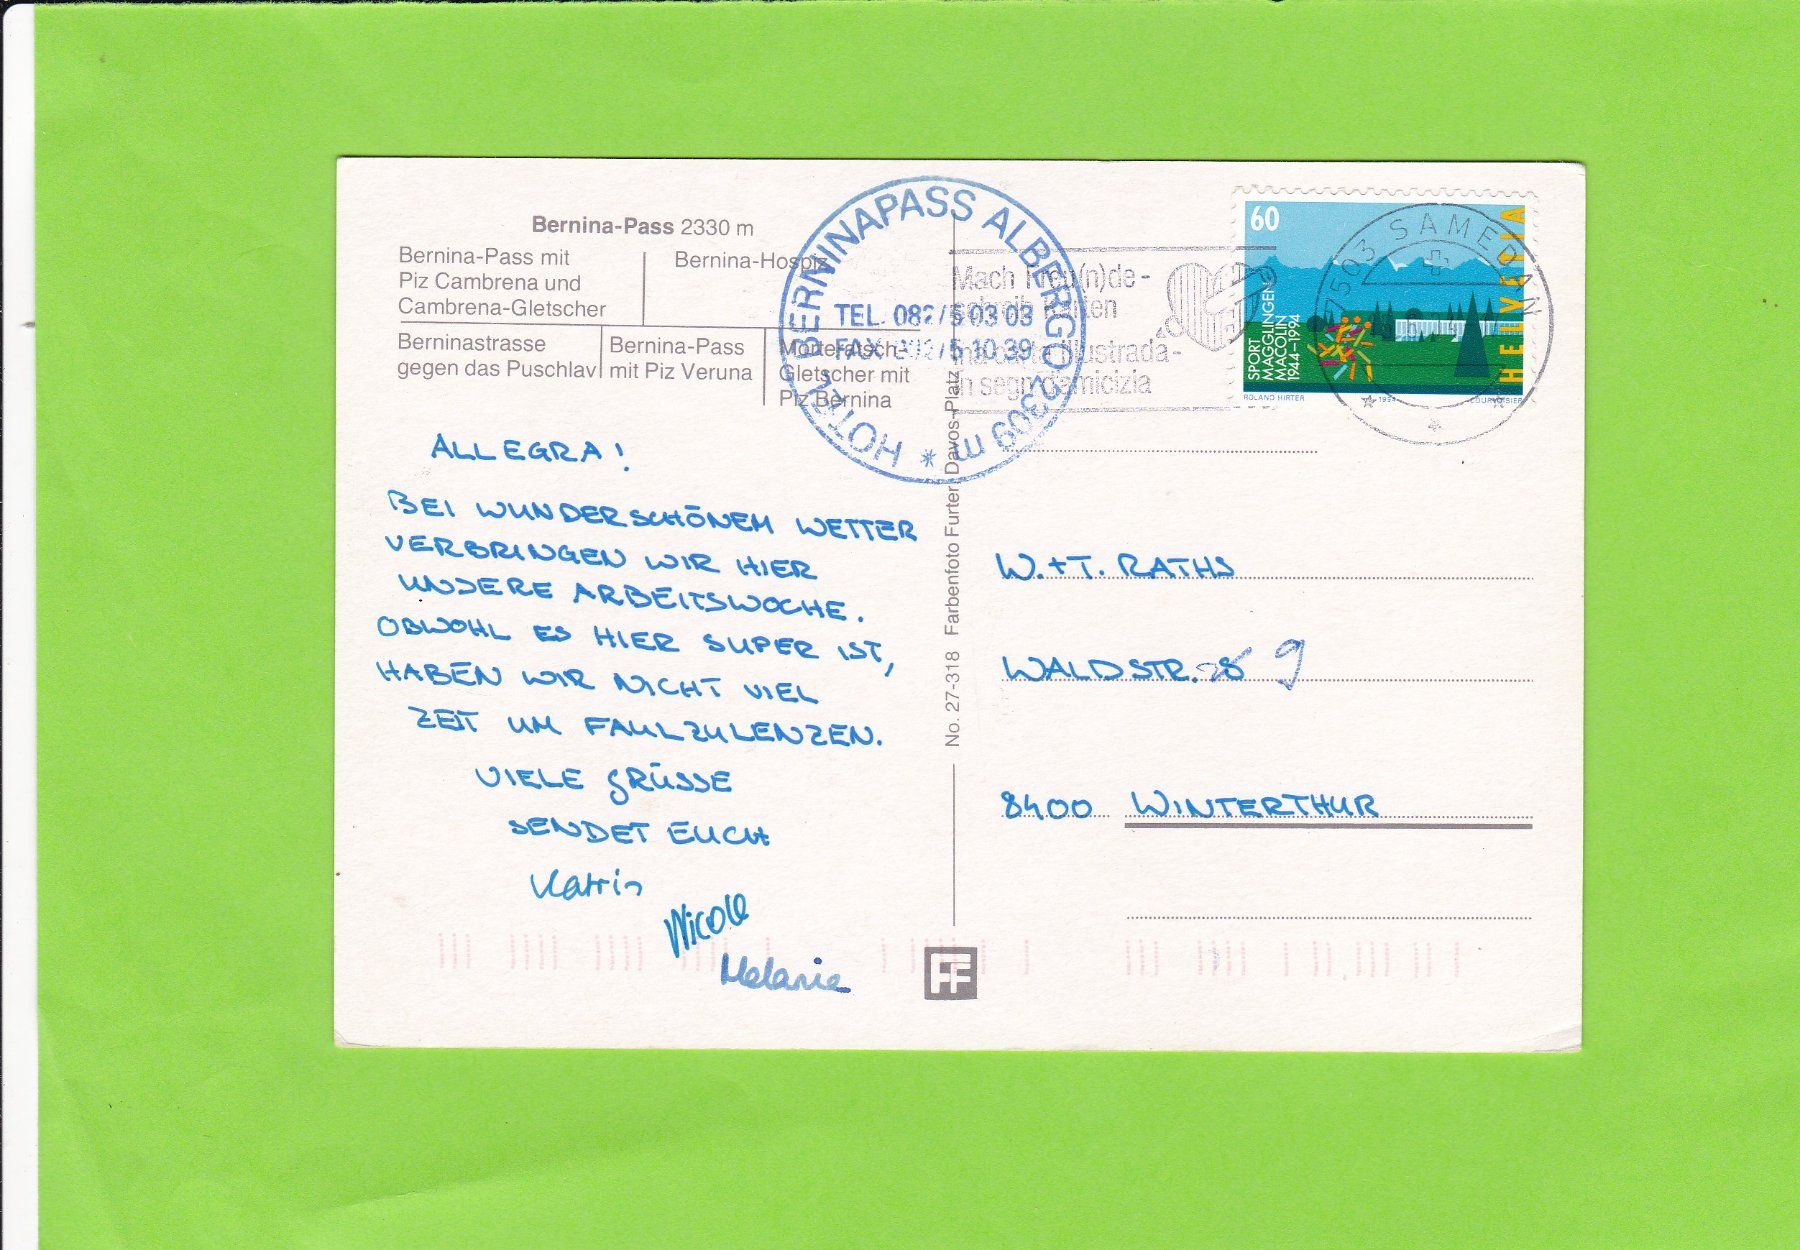 Bernina-Pass 2330 m
Bernina-Pass mit
Piz Cambrena und
Cambrena-Gletscher
Bernina-Hospiz
Berninastrasse
gegen das Puschlav
Bernina-Pass
mit Piz Veruna
Morteratsch-
Gletscher mit
Piz Bernina
HOTEL BERNINAPASS ALBERGO 2309 m *
TEL. 082/5 03 03
FAX 082/5 10 39
Mach Freu(n)de-
schreib Karten
illustrada-
in segn d'amicizia
60
HELVETIA
SPORT
MAGGLINGEN
MACOLIN
1944-1994
ROLAND HIRTER
1994
COURVOISIER
7503 SAMEDAN
ALLEGRA!
BEI WUNDERSCHÖNEM WETTER
VERBRINGEN WIR HIER
UNSERE ARBEITSWOCHE.
OBWOHL ES HIER SUPER IST,
HABEN WIR NICHT VIEL
ZEIT UM FAULZULENZEN.
VIELE GRÜSSE
SENDET EUCH
Katrin
Nicole
Melanie
No. 27-318 Farbenfoto Furter, Davos-Platz
W.+T. RATHS
WALDSTR. 9
8400 WINTERTHUR
FF